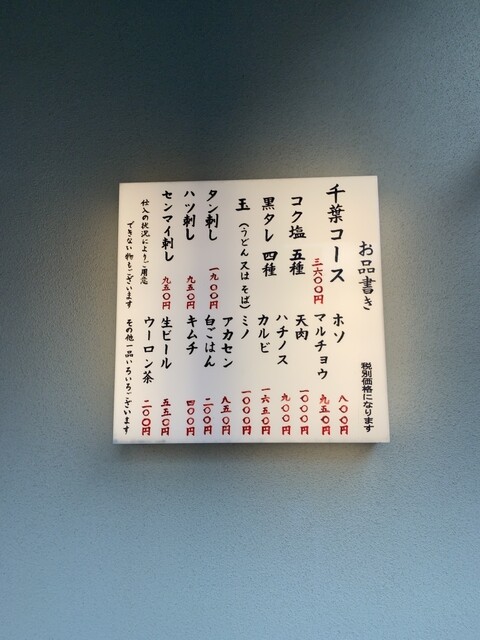 お品書き
税別価格になります
千葉コース
三六〇〇円
コク塩 五種
黒タレ 四種
玉(うどん又はそば)
タン刺し 一九〇〇円
ハツ刺し 九五〇円
センマイ刺し 九五〇円
仕入の状況によりご用意
できない物もございます
ホソ 八〇〇円
マルチョウ 九五〇円
天肉 一〇〇〇円
ハチノス 九〇〇円
カルビ 一六五〇円
ミノ 一〇〇〇円
アカセン 八五〇円
白ごはん 二〇〇円
キムチ 四〇〇円
生ビール 五五〇円
ウーロン茶 二〇〇円
その他一品いろいろございます